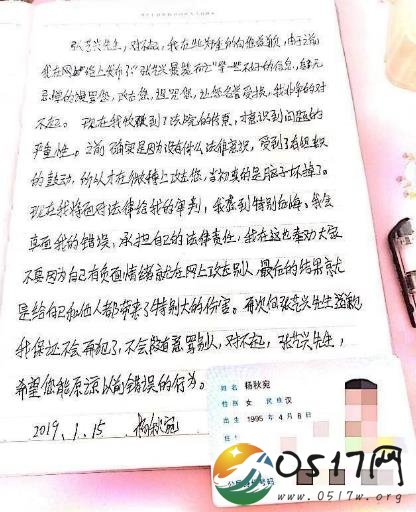 张艺兴先生，对不起，我在此郑重的向您道歉，由于之前
我在网络上发布了"张艺兴最能
的信息，
恶劣的
您，攻击您，诅咒您，让您名誉受损，我非常的对
不起。现在我收到了法院的传票，才意识到问题的
严重性。之前确实是因为没有什么法律意识，受到了有组织
的鼓动，所以才在微博上攻击您，当初真的是脑子坏掉了。
现在我将面对法律给我的审判，我感到特别后悔。我会
直面我的错误，承担自己的法律责任，我在这也奉劝大家
不要因为自己有负面情绪就在网上攻击别人，最后的结果就
是给自己和他人都带来了特别大的伤害。再次向张艺兴先生道歉
我保证不会再犯了，不会随意骂别人，对不起，张艺兴先生，
希望您能原谅以前错误的行为。
2019.1.15 杨秋宛
姓名 杨秋宛
性别 女 民族 汉
出生 1995 年 4 月 8 日
住
公民身份号码
0517网
www.0517w.org